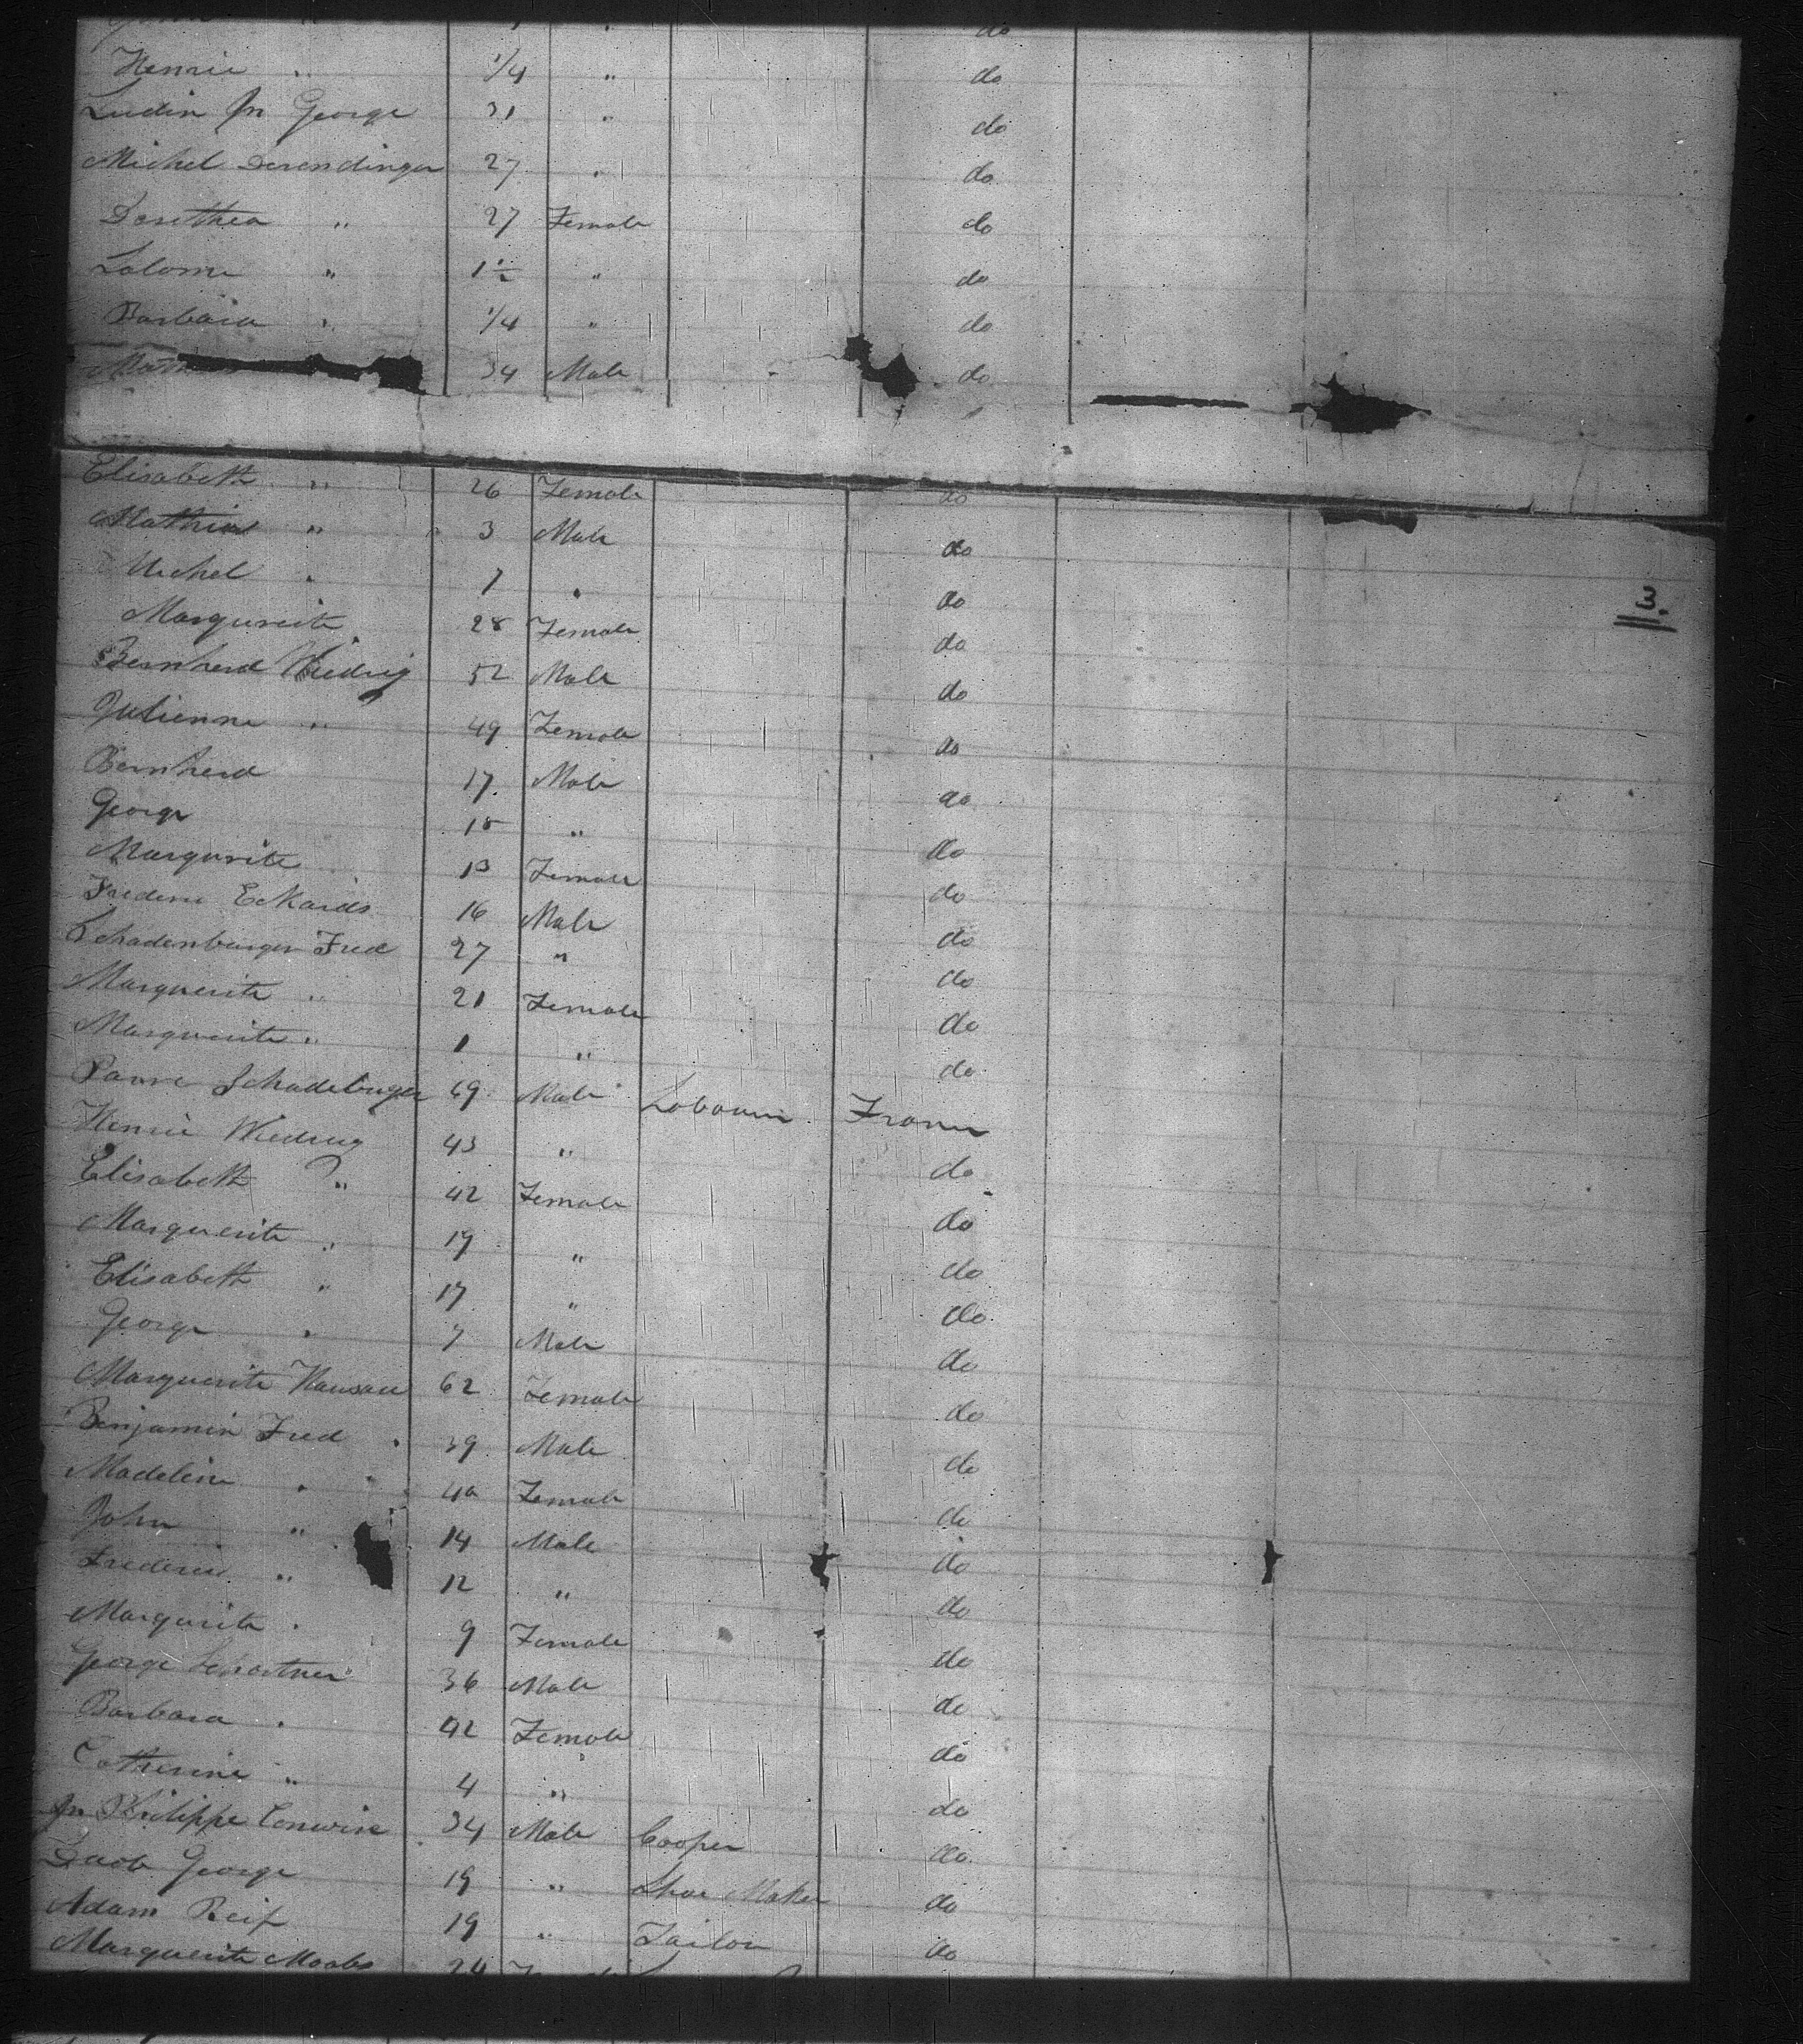 do
Henrie " 1/4 " do
Ludin Jn George 31 " do
Michel Derendinger 27 " do
Dorothea " 27 Female do
Salome " 1½ " do
Barbara " 1/4 " do
34 Male do
Elisabeth " 26 Female do
Mathias " 3 Male do
Michel " 7 " do
Marguerite 28 Female do
Bernherd Wiedrig 52 Male do
Julienne " 49 Female do
Bernherd 17 Male do
George 18 " do
Margurite 13 Female do
Frederic Eckards 16 Male do
Schadenburger Fred 27 " do
Marguerite " 21 Female do
Marguerite " 1 " do
Schadeburger 69 Male Labourer France
Henrie Wiedrug 43 " do
Elisabeth " 42 Female do
Marguerite " 19 " do
Elisabeth " 17 " do
George " 7 Male do
Marguerite Hausau 62 Female do
Benjamin Fred " 39 Male do
Madeline " 40 Female do
John " 14 Male do
Frederic " 12 " do
Margurite " 9 Female do
George Schartner 36 Male do
Barbara " 42 Female do
Catherine " 4 " do
Jn Philippe 34 Male Cooper do
George 19 " Shoe Maker do
Adam Reif 19 " Tailor do
Marguerite 24
3.